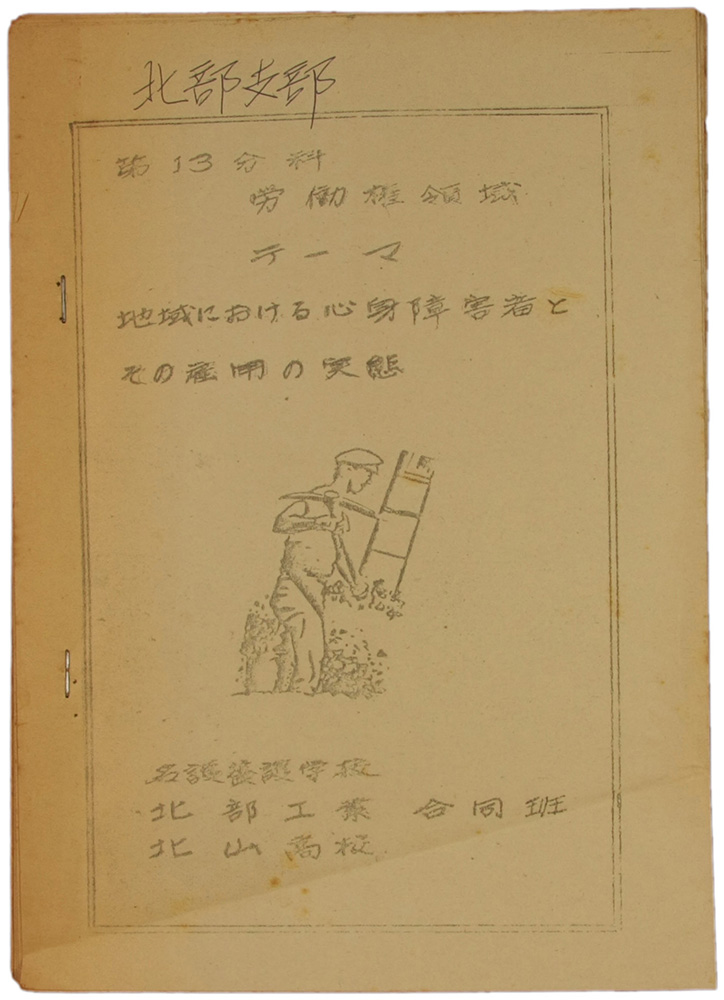 北部支部
第13分科
労働権領域
テーマ
地域における心身障害者と
その雇用の実態
名護養護学校
北部工業 合同班
北山高校